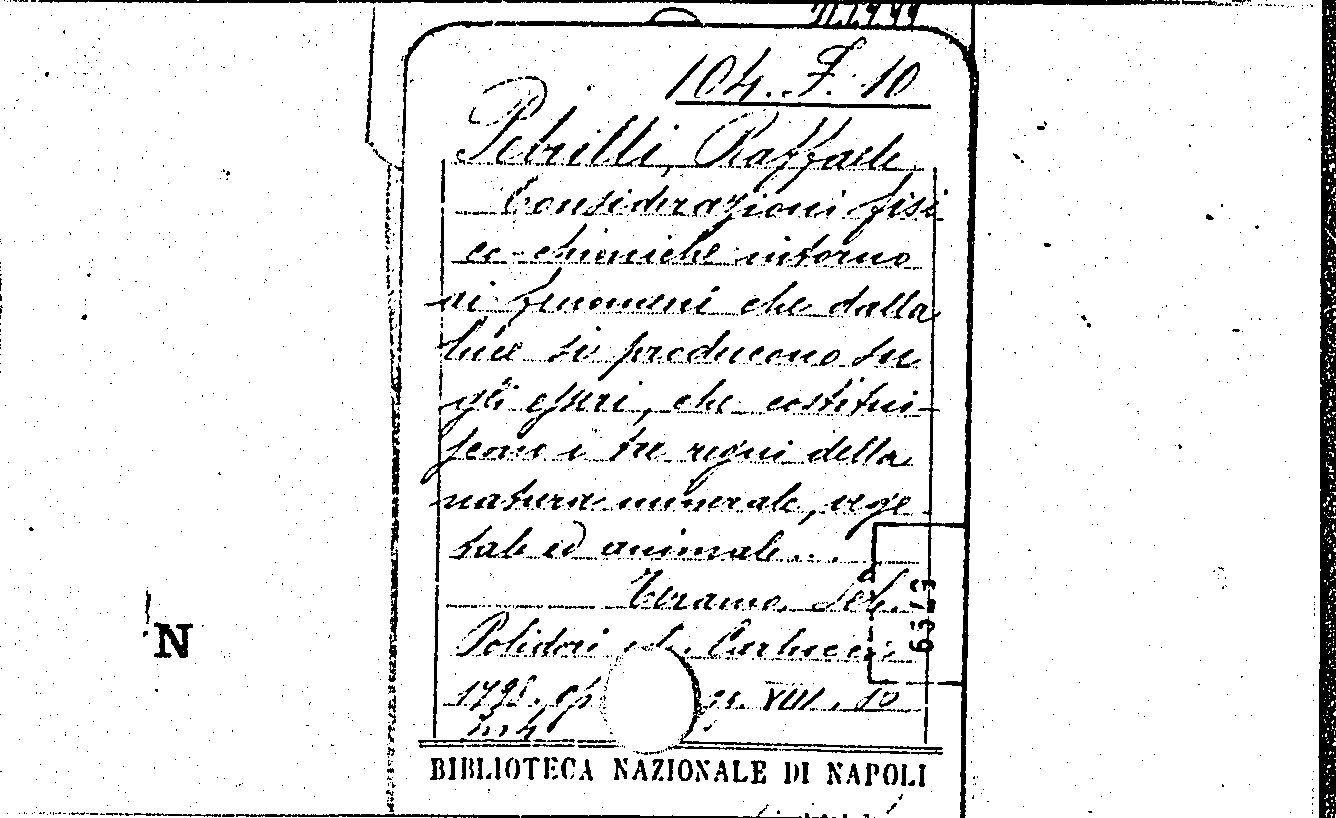 104. F. 10
Petrilli, Raffaele
Considerazioni fisi
co-chimiche intorno
ai fenomeni che dalla
luce si producono su
gli esseri, che costitui-
scono i tre regni della
natura minerale, vege
tale ed animale...
Teramo.
Polidori ed. Carlucci
1798. VIII. 10
6319
N
BIBLIOTECA NAZIONALE DI NAPOLI